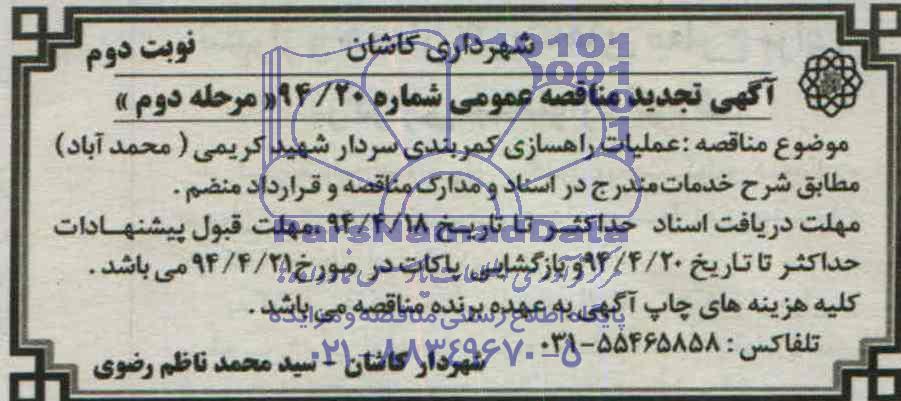 شهرداری کاشان
نوبت دوم
آگهی تجدید مناقصه عمومی شماره ۹۴/۲۰ « مرحله دوم »
موضوع مناقصه : عملیات راهسازی کمربندی سردار شهید کریمی ( محمد آباد )
مطابق شرح خدمات مندرج در اسناد و مدارک مناقصه و قرارداد منضم .
مهلت دریافت اسناد حداکثر تا تاریخ ۹۴/۴/۱۸ .مهلت قبول پیشنهادات
حداکثر تا تاریخ ۹۴/۴/۲۰ و بازگشایی پاکات در مورخ ۹۴/۴/۲۱ می باشد .
کلیه هزینه های چاپ آگهی به عهده برنده مناقصه می باشد .
تلفاکس : ۵۵۴۶۵۸۵۸-۰۳۱
شهردار کاشان - سید محمد ناظم رضوی
ParsNamadData
پایگاه اطلاع رسانی مناقصه و مزایده
۰۲۱-۸۸۳۴۹۶۷۰-۵